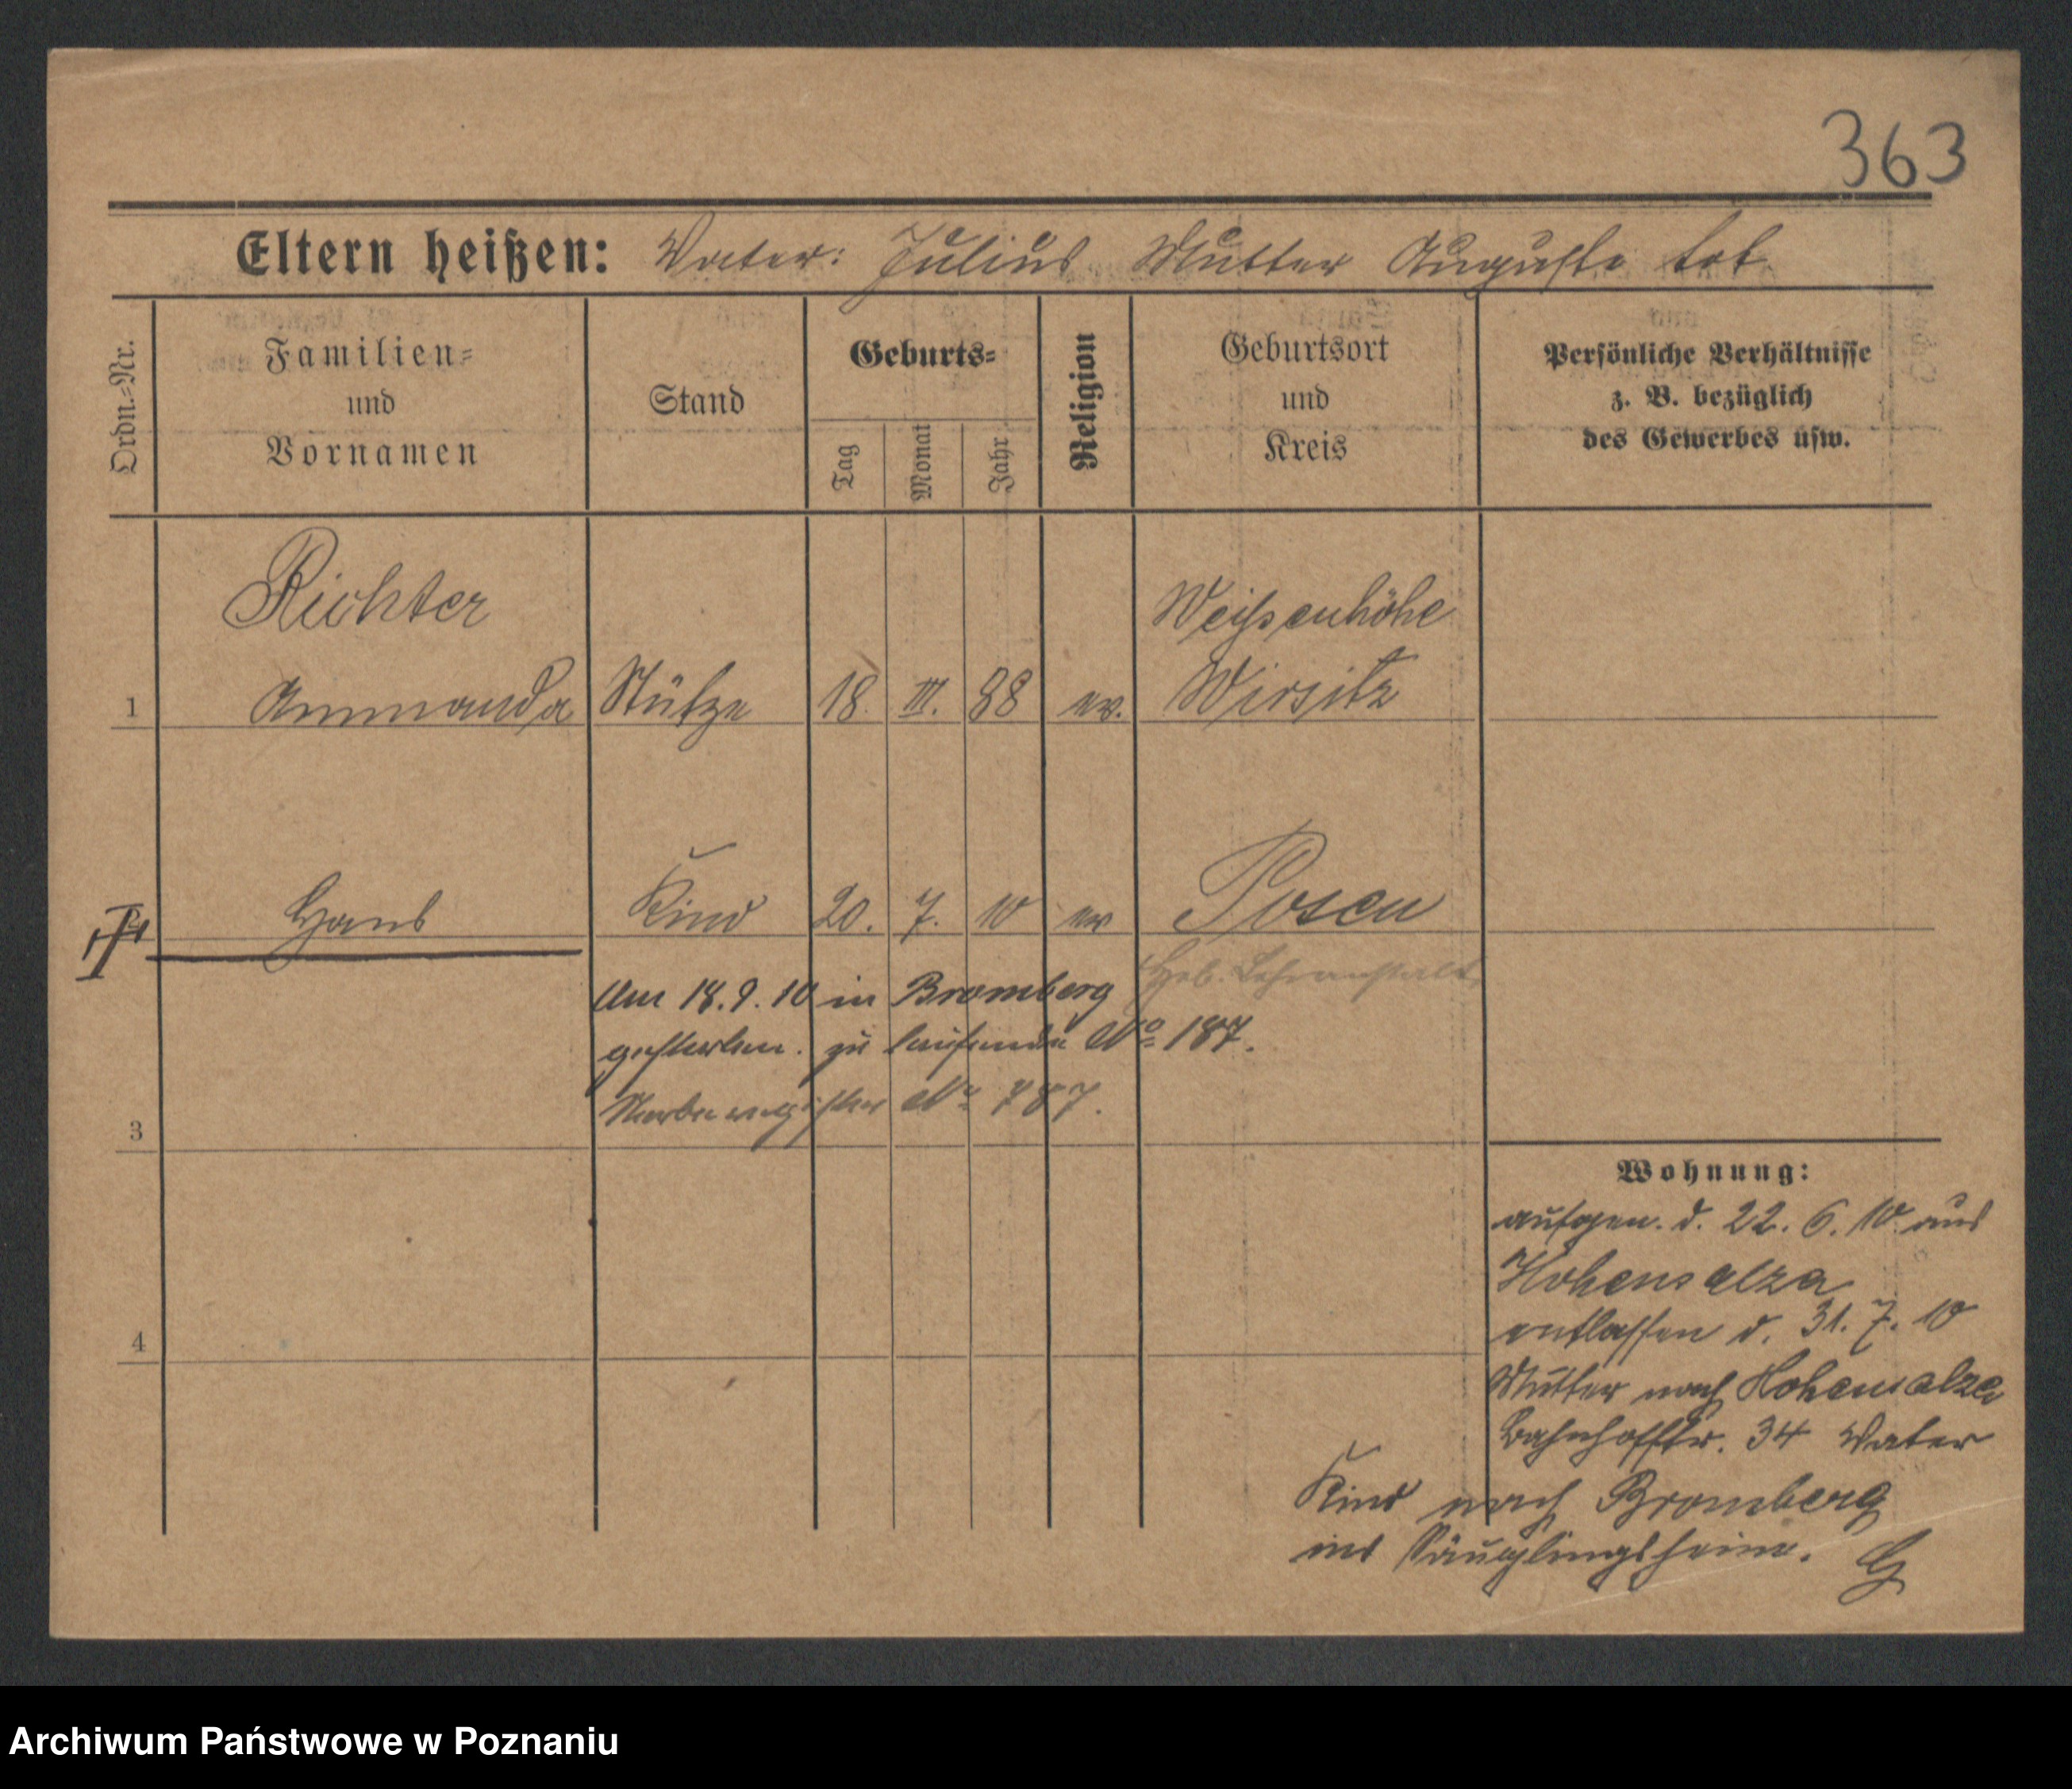 363
Eltern heißen: Vater: Julius Mutter Auguste tot
Ordn.=Nr.
Familien=
und
Vornamen
Stand
Geburts=
Tag
Monat
Jahr
Religion
Geburtsort
und
Kreis
Persönliche Verhältnisse
z. B. bezüglich
des Gewerbes usw.
Richter
Weißenhöhe
1 Ammanda Stütze 18. III. 88 ev. Wirsitz
Hans Kind 20. 7. 10 ev Posen
Heb. Lehranstalt
Am 18.9.10 in Bromberg
gestorben. zu laufende No 187.
Sterberegister No 787.
3
4
Wohnung:
aufgen. d. 22. 6. 10 aus
Hohensalza
entlassen d. 31. 7. 10
Mutter nach Hohensalza
Bahnhofstr. 34 Vater
Kind nach Bromberg
ins Säuglingsheim. G
Archiwum Państwowe w Poznaniu